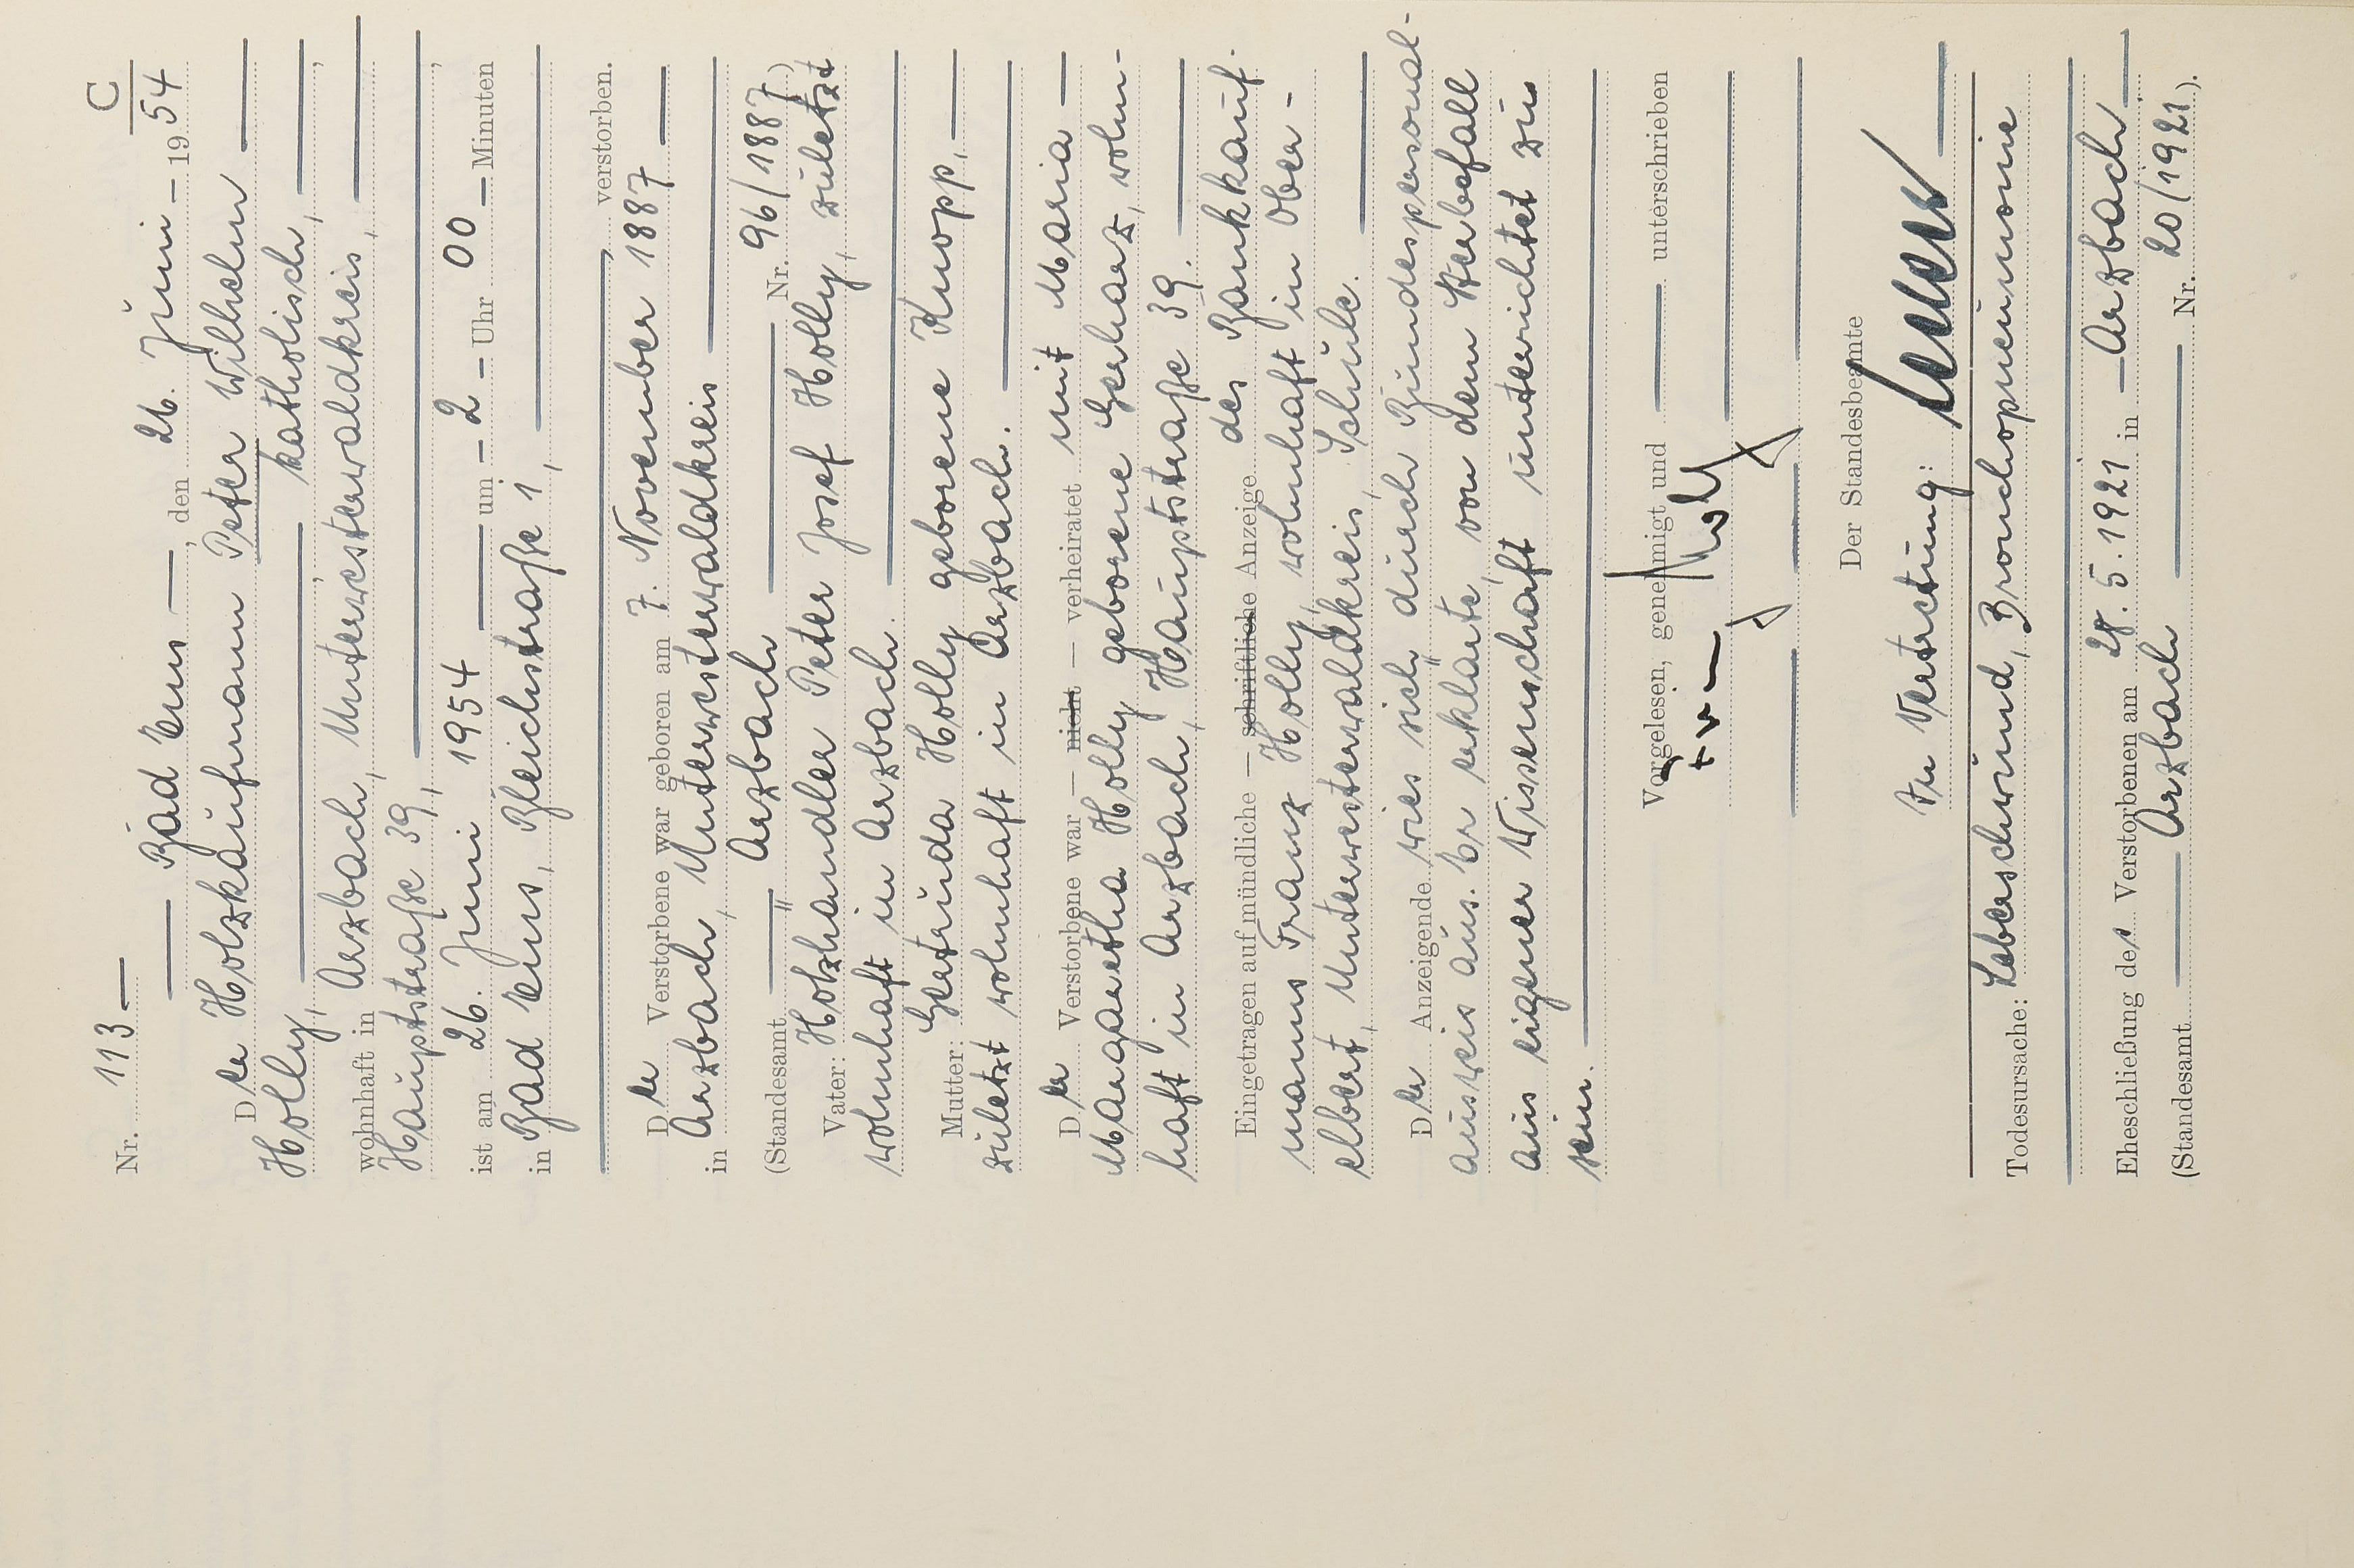 C
Nr. 113
Bad Ems, den 26. Juni 1954
Der Holzkaufmann Peter Wilhelm
Holly, katholisch,
wohnhaft in Arzbach, Unterwesterwaldkreis,
Hauptstraße 39,
ist am 26. Juni 1954 um 2 Uhr 00 Minuten
in Bad Ems, Bleichstraße 1,
verstorben.
Der Verstorbene war geboren am 7. November 1887
in Arzbach, Unterwesterwaldkreis
(Standesamt Arzbach Nr. 96/1887)
Vater: Holzhändler Peter Josef Holly, zuletzt
wohnhaft in Arzbach.
Mutter: Gertruda Holly geborene Knopp,
zuletzt wohnhaft in Arzbach.
Der Verstorbene war — nicht — verheiratet mit Maria
Margaretha Holly geborene Gerharz, wohn-
haft in Arzbach, Hauptstraße 39.
Eingetragen auf mündliche — schriftliche Anzeige des Bankkauf-
manns Franz Holly, wohnhaft in Ober-
elbert, Unterwesterwaldkreis, Schule.
Der Anzeigende wies sich durch Bundespersonal-
ausweis aus. Er erklärte, von dem Sterbefall
aus eigener Wissenschaft unterrichtet zu
sein.
Vorgelesen, genehmigt und unterschrieben
Der Standesbeamte
In Vertretung:
Todesursache: Leberschwund, Bronchopneumonie
Eheschließung des Verstorbenen am 28.5.1921 in Arzbach
(Standesamt Arzbach Nr. 20/1921).